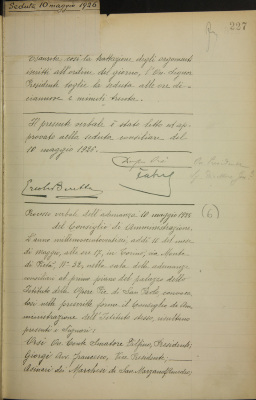 Seduta 10 maggio 1926
227
Esaurita così la trattazione degli argomenti
iscritti all'ordine del giorno, l'On. Signor
Presidente toglie la seduta alle ore di-
ciannove e minuti trenta.
Il presente verbale è stato letto ed ap-
provato nella seduta consiliare del
10 maggio 1926.
(6)
Processo verbale dell'adunanza 10 maggio 1926
del Consiglio di Amministrazione.
L'anno millenovecentoventisei, addì 10 del mese
di maggio, alle ore 17, in Torino, via Monte
di Pietà, N° 32, nella sala delle adunanze
al piano primo del palazzo dell'
Istituto delle Opere Pie di San Paolo, convoca-
tosi nelle prescritte forme il Consiglio di Am-
ministrazione dell'Istituto stesso, risultano
presenti i Signori:
Orsi On. Conte Senatore Delfino, Presidente;
Giorgi Avv. Francesco, Vice Presidente;
Asinari dei Marchesi di San Marzano